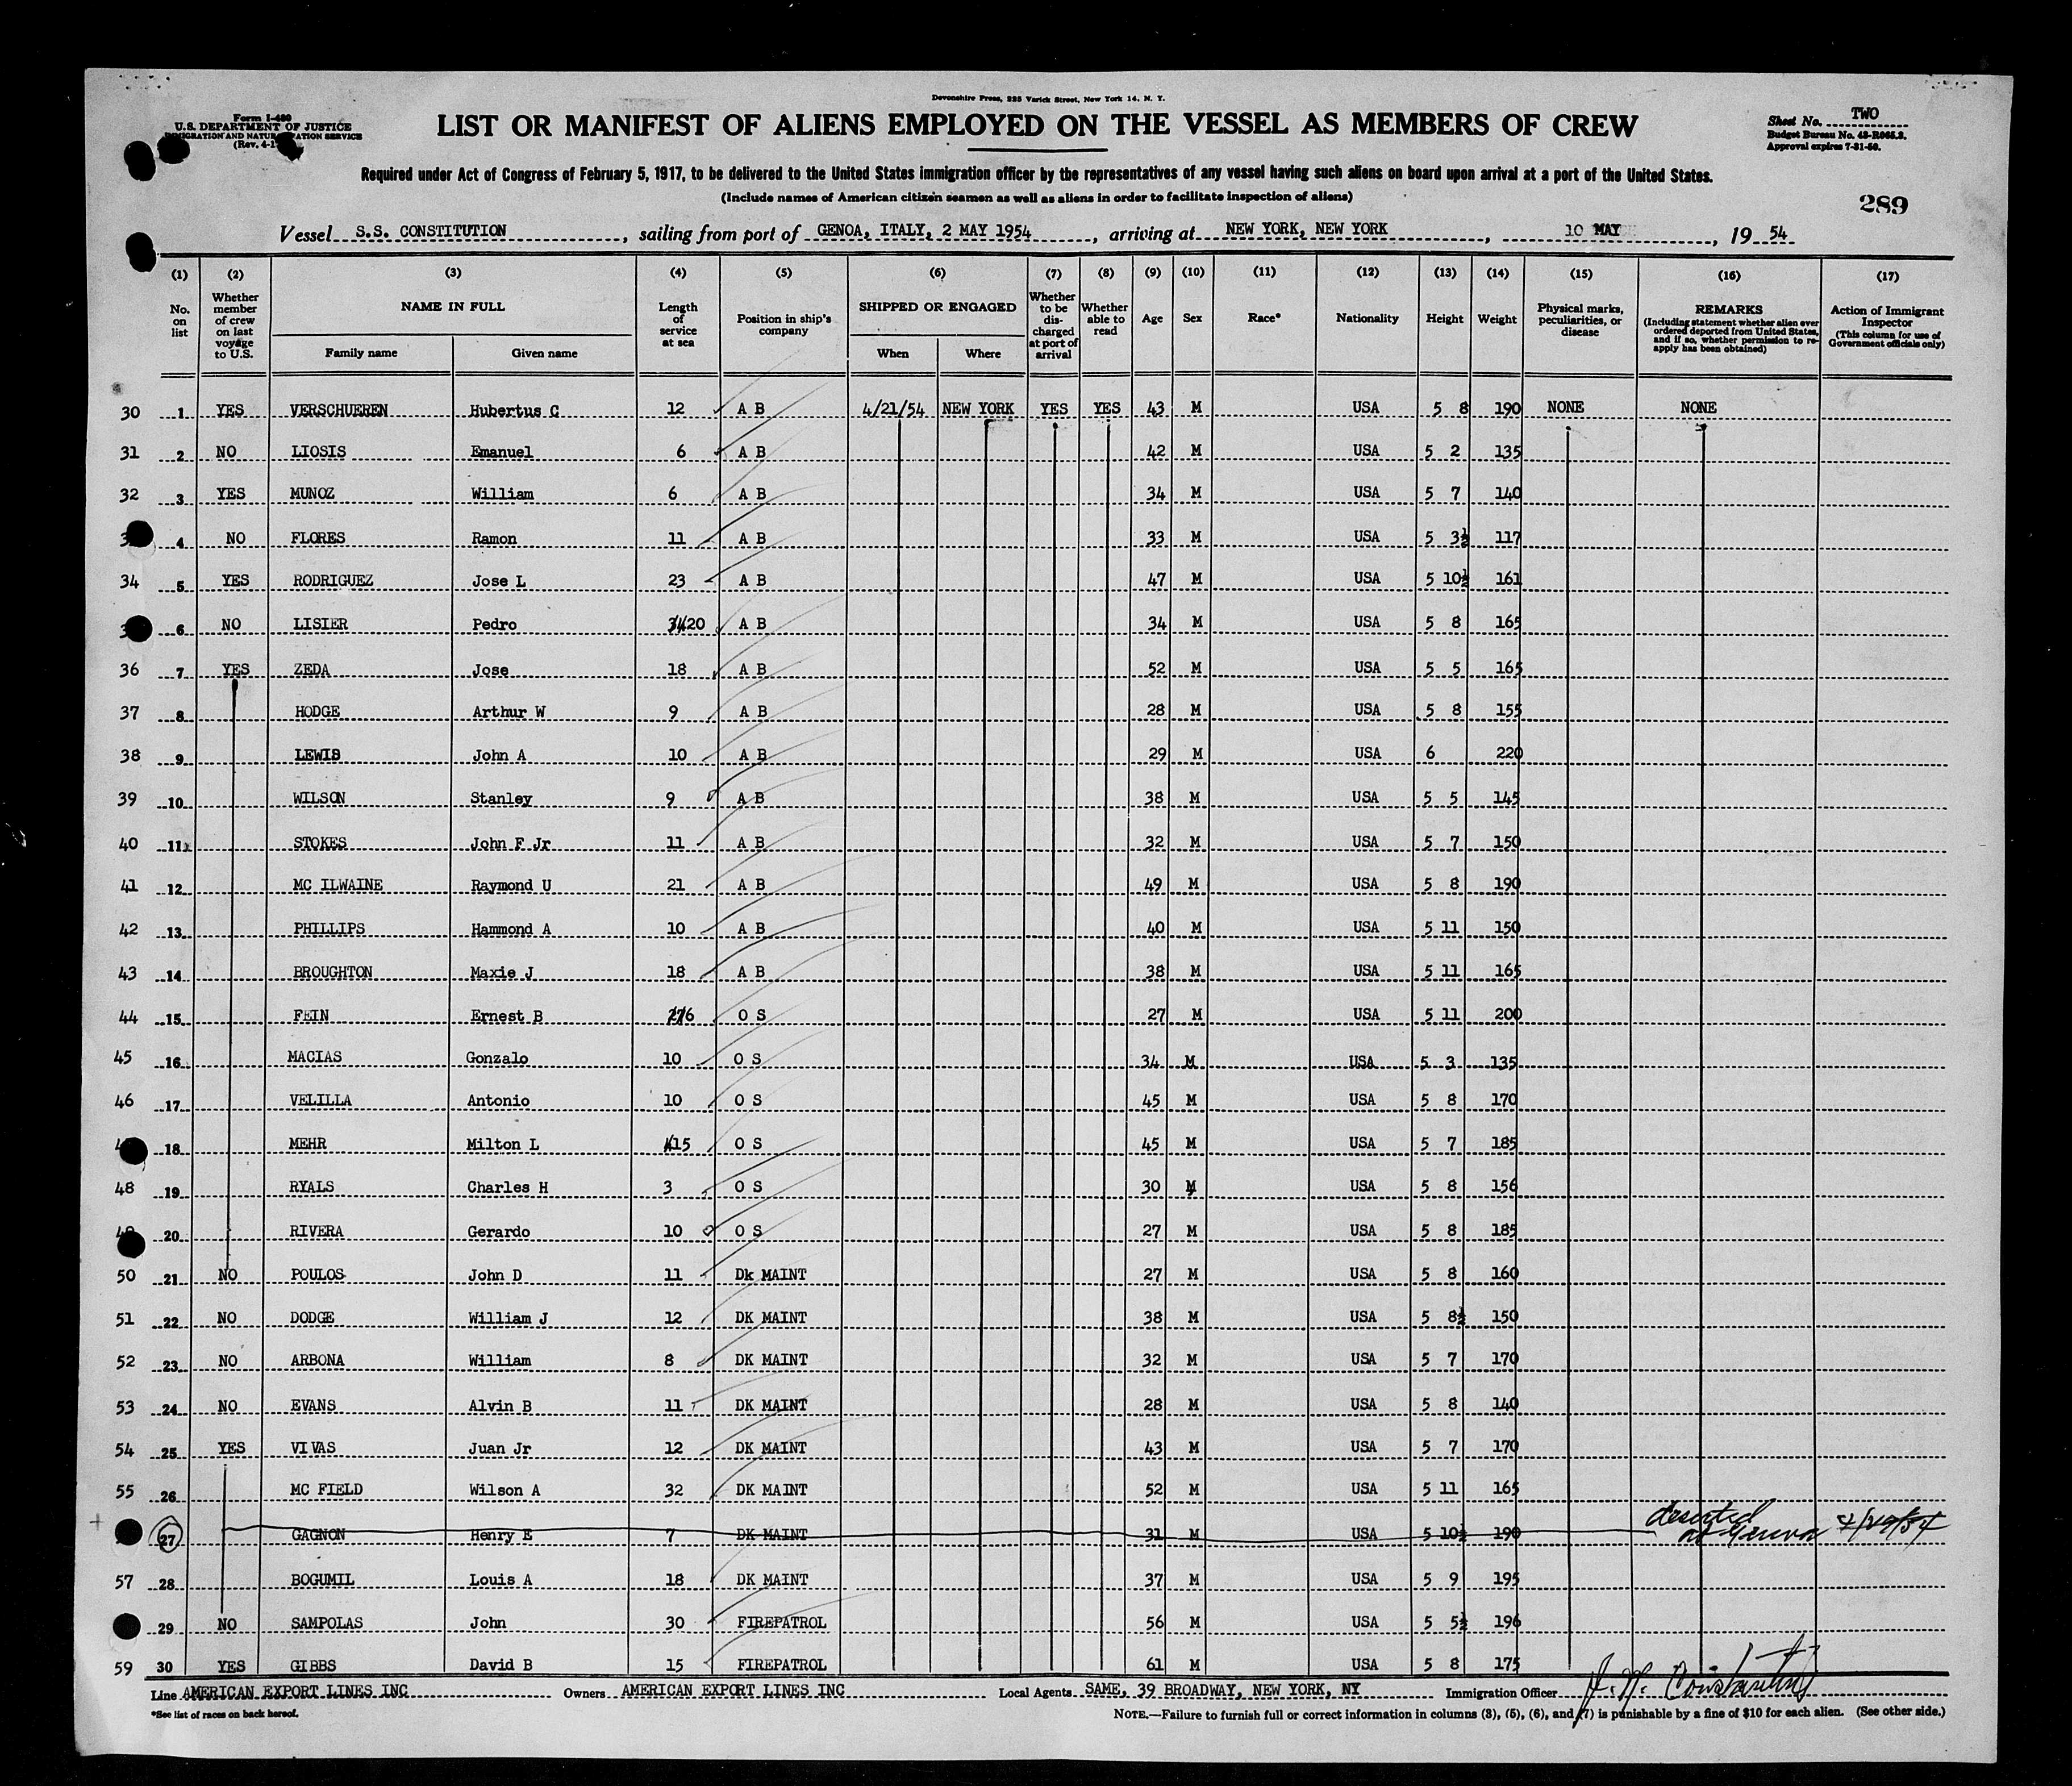 Devonshire Press, 225 Varick Street, New York 14, N. Y.
Form I-480
U.S. DEPARTMENT OF JUSTICE
IMMIGRATION AND NATURALIZATION SERVICE
(Rev. 4-1
LIST OR MANIFEST OF ALIENS EMPLOYED ON THE VESSEL AS MEMBERS OF CREW
Sheet No. TWO
Budget Bureau No. 43-R065.3.
Approval expires 7-31-50.
Required under Act of Congress of February 5, 1917, to be delivered to the United States immigration officer by the representatives of any vessel having such aliens on board upon arrival at a port of the United States.
(Include names of American citizen seamen as well as aliens in order to facilitate inspection of aliens)
289
Vessel S.S. CONSTITUTION, sailing from port of GENOA, ITALY, 2 MAY 1954, arriving at NEW YORK, NEW YORK, 10 MAY, 19 54
(1) (2) (3) (4) (5) (6) (7) (8) (9) (10) (11) (12) (13) (14) (15) (16) (17)
No. on list
Whether member of crew on last voyage to U.S.
NAME IN FULL
Family name
Given name
Length of service at sea
Position in ship's company
SHIPPED OR ENGAGED
When
Where
Whether to be discharged at port of arrival
Whether able to read
Age
Sex
Race*
Nationality
Height
Weight
Physical marks, peculiarities, or disease
REMARKS
(Including statement whether alien ever ordered deported from United States, and if so, whether permission to re-apply has been obtained)
Action of Immigrant Inspector
(This column for use of Government officials only)
30 1 YES VERSCHUEREN Hubertus C 12 A B 4/21/54 NEW YORK YES YES 43 M USA 5 8 190 NONE NONE
31 2 NO LIOSIS Emanuel 6 A B 42 M USA 5 2 135
32 3 YES MUNOZ William 6 A B 34 M USA 5 7 140
4 NO FLORES Ramon 11 A B 33 M USA 5 3½ 117
34 5 YES RODRIGUEZ Jose L 23 A B 47 M USA 5 10½ 161
6 NO LISIER Pedro 20 A B 34 M USA 5 8 165
36 7 YES ZEDA Jose 18 A B 52 M USA 5 5 165
37 8 HODGE Arthur W 9 A B 28 M USA 5 8 155
38 9 LEWIS John A 10 A B 29 M USA 6 220
39 10 WILSON Stanley 9 A B 38 M USA 5 5 145
40 11 STOKES John F Jr 11 A B 32 M USA 5 7 150
41 12 MC ILWAINE Raymond U 21 A B 49 M USA 5 8 190
42 13 PHILLIPS Hammond A 10 A B 40 M USA 5 11 150
43 14 BROUGHTON Maxie J 18 A B 38 M USA 5 11 165
44 15 FEIN Ernest B 6 O S 27 M USA 5 11 200
45 16 MACIAS Gonzalo 10 O S 34 M USA 5 3 135
46 17 VELILLA Antonio 10 O S 45 M USA 5 8 170
18 MEHR Milton L 15 O S 45 M USA 5 7 185
48 19 RYALS Charles H 3 O S 30 M USA 5 8 156
49 20 RIVERA Gerardo 10 O S 27 M USA 5 8 185
50 21 NO POULOS John D 11 Dk MAINT 27 M USA 5 8 160
51 22 NO DODGE William J 12 DK MAINT 38 M USA 5 8½ 150
52 23 NO ARBONA William 8 DK MAINT 32 M USA 5 7 170
53 24 NO EVANS Alvin B 11 DK MAINT 28 M USA 5 8 140
54 25 YES VIVAS Juan Jr 12 DK MAINT 43 M USA 5 7 170
55 26 MC FIELD Wilson A 32 DK MAINT 52 M USA 5 11 165
27 GAGNON Henry E 7 DK MAINT 31 M USA 5 10½ 190 deserted at Genova 4/29/54
57 28 BOGUMIL Louis A 18 DK MAINT 37 M USA 5 9 195
29 NO SAMPOLAS John 30 FIREPATROL 56 M USA 5 5½ 196
59 30 YES GIBBS David B 15 FIREPATROL 61 M USA 5 8 175
Line AMERICAN EXPORT LINES INC Owners AMERICAN EXPORT LINES INC Local Agents SAME, 39 BROADWAY, NEW YORK, NY Immigration Officer
*See list of races on back hereof.
NOTE.—Failure to furnish full or correct information in columns (3), (5), (6), and (7) is punishable by a fine of $10 for each alien. (See other side.)